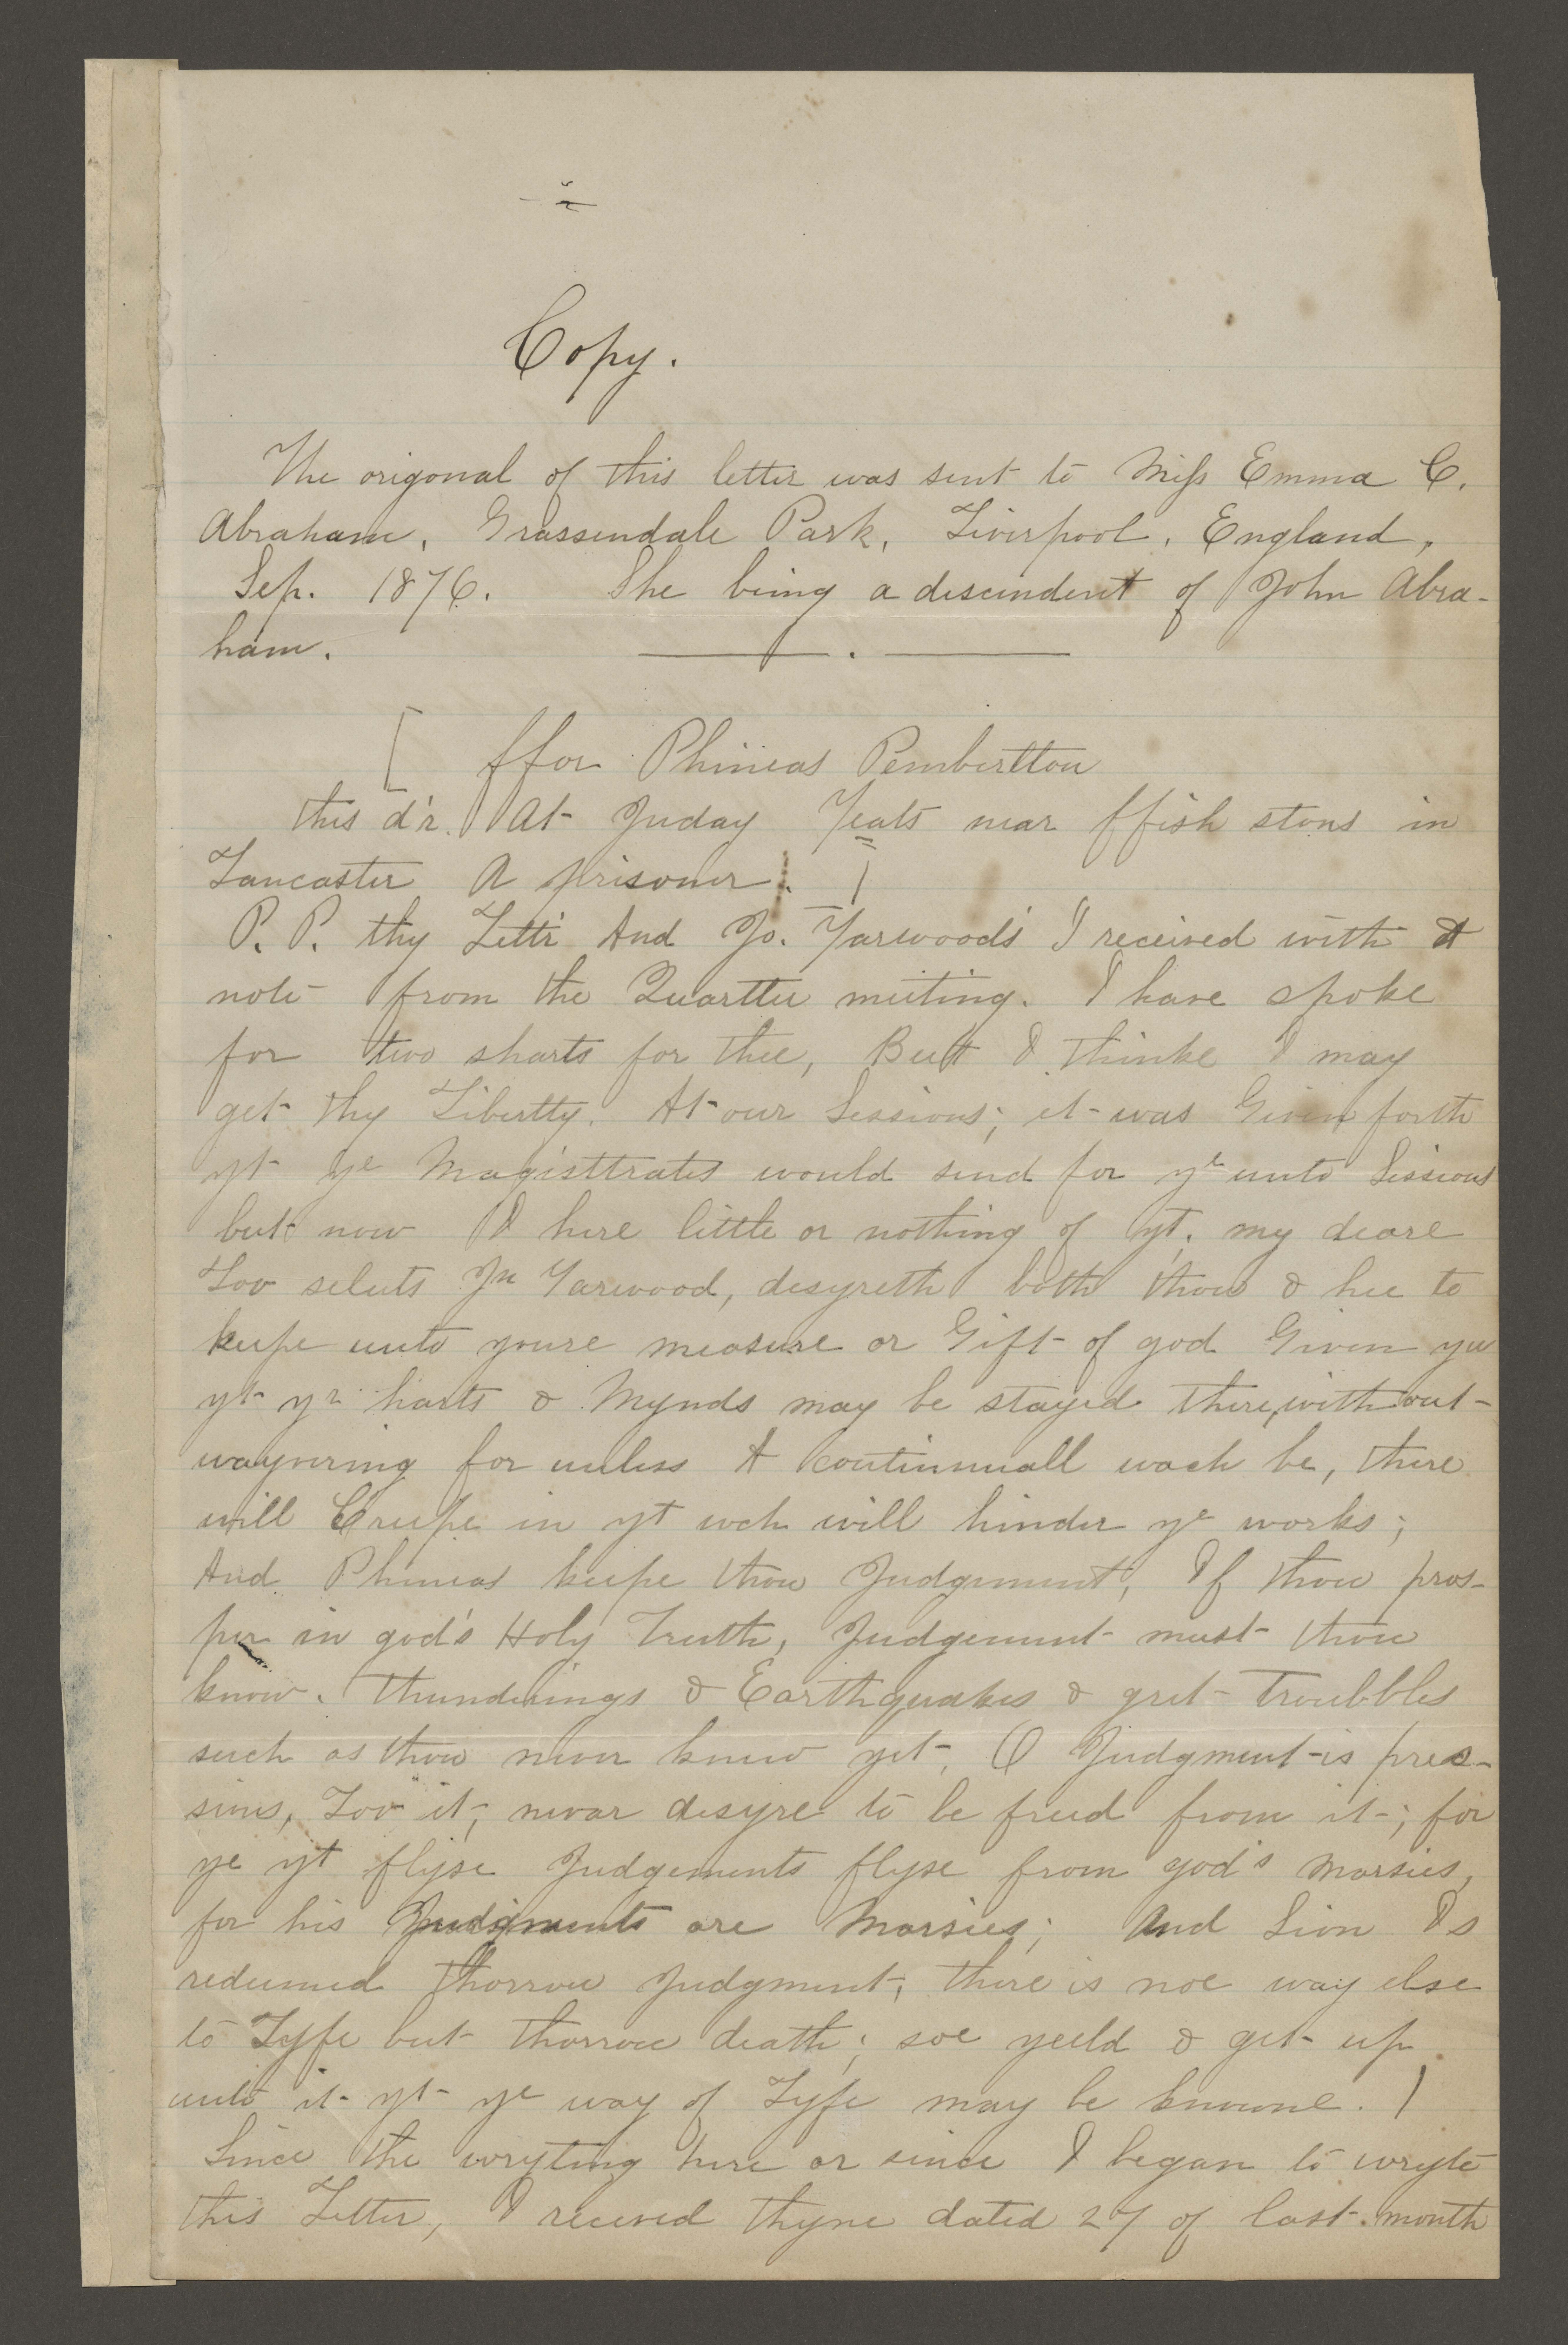 Copy.
The origonal of this letter was sent to Miss Emma C.
Abraham, Grassendale Park, Liverpool, England,
Sep. 1876. She being a descendent of John Abra-
ham.
[ ffor Phineas Pembertton
this d'r. At Juday Yeats near ffish stons in
Lancaster A prisoner. |
P. P. thy Lettr And Jo. Yarwoods I received with A
note from the Quartter meeting. I have spoke
for two sharts for thee, But I thinke I may
get thy Libertty. At our Sessions; it was Given forth
yt ye Magisttrates would send for ye unto Sessions
but now I here little or nothing of yt; my deare
Lov seluts Jn Yarwood, desyreth both thou & hee to
keepe unto youre measure or Gift of god Given you
yt yr harts & Mynds may be stayed there, without
wayvering for unless A continnuall wach be, there
will Creepe in yt wch will hinder ye works;
And Phineas keepe thou Judgement, If thou pros-
per in god's Holy Truth, Judgement must thou
know. Thunderings & Earthquakes & gret Troubbles
such as thou never knew yet, O Judgment is pres-
sious, Lov it, nevar desyre to be freed from it; for
ye yt flyse Judgements flyse from god's Marsies,
for his Judgments are Marsies; And Sion Is
redeemed thorrow Judgment, there is noe way else
to Lyfe but thorrow death; soe yeeld & get up
unto it yt ye way of Lyfe may be knowne. |
Since the wryting here or since I began to wryte
this Letter, I received thyne dated 27 of last month